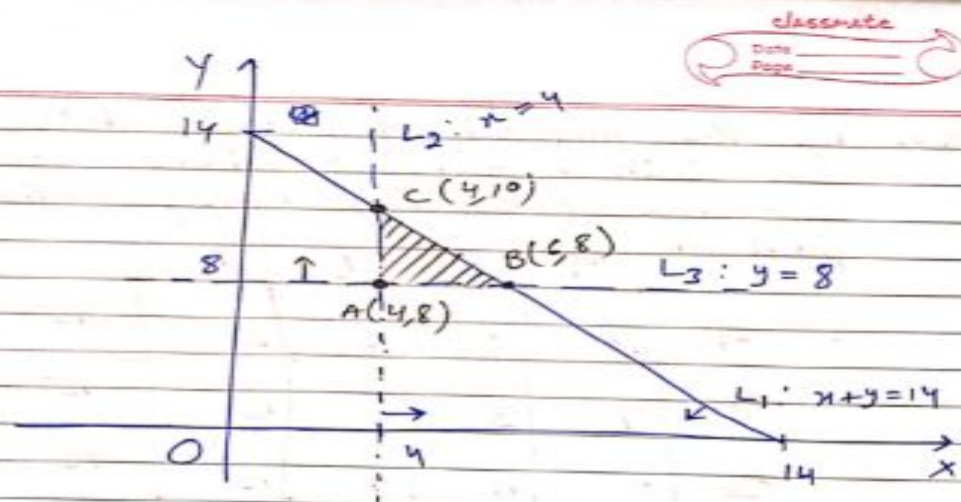 classmate
Date
Page
Y
14
L2 : x = 4
C (4,10)
B(6,8)
8
L3 : y = 8
A(4,8)
L1 : x+y=14
O
4
14
X